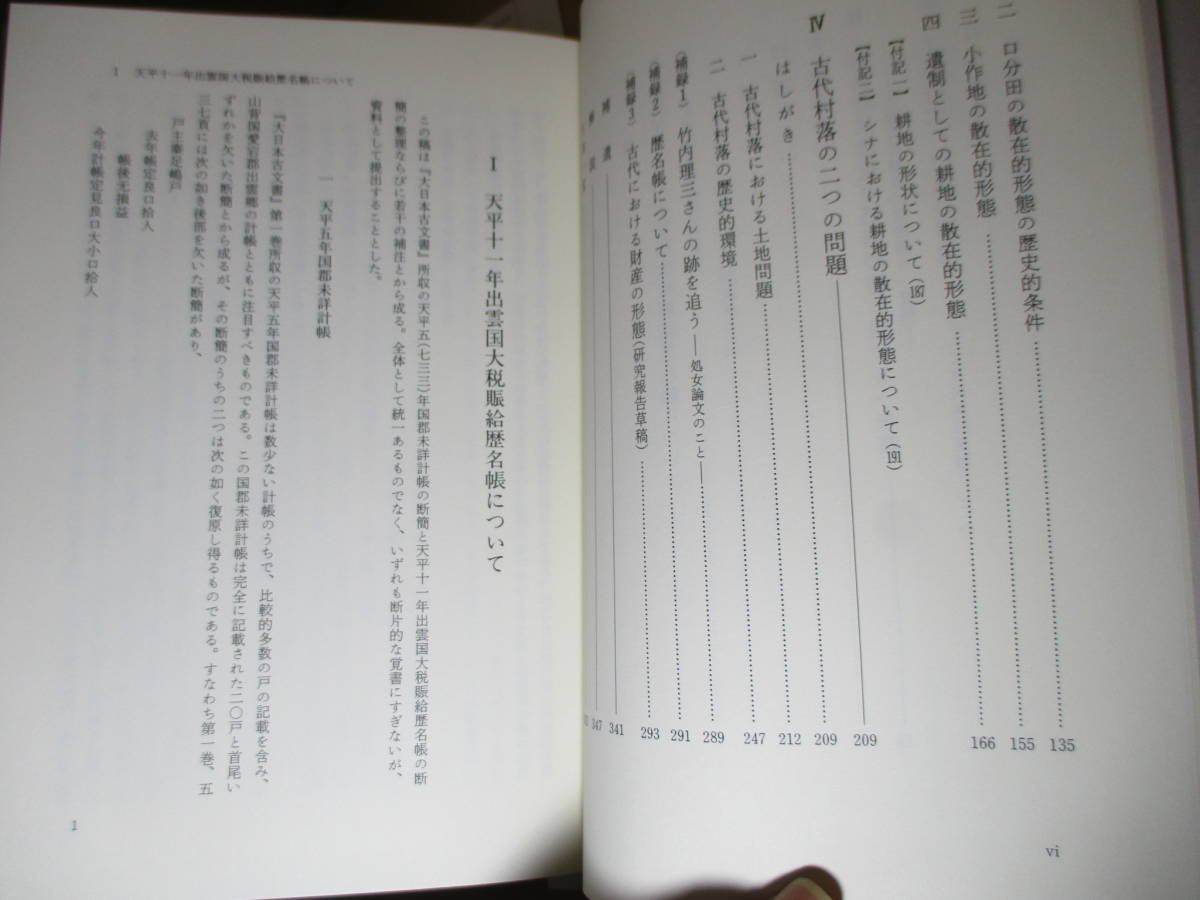 二 口分田の散在的形態の歴史的条件 135
三 小作地の散在的形態 155
四 遺制としての耕地の散在的形態 166
【付記一】 耕地の形状について (187)
【付記二】 シナにおける耕地の散在的形態について (191)
Ⅳ 古代村落の二つの問題 209
はしがき 209
一 古代村落における土地問題 212
二 古代村落の歴史的環境 247
〈補録1〉 竹内理三さんの跡を追う――処女論文のこと―― 289
〈補録2〉 歴名帳について 291
〈補録3〉 古代における財産の形態(研究報告草稿) 293
補遺 341
解説 347
vi
Ⅰ 天平十一年出雲国大税賑給歴名帳について
Ⅰ 天平十一年出雲国大税賑給歴名帳について
この稿は『大日本古文書』所収の天平五(七三三)年国郡未詳計帳の断簡と天平十一年出雲国大税賑給歴名帳の断
簡の整理ならびに若干の補注とから成る。全体として統一あるものでなく、いずれも断片的な覚書にすぎないが、
資料として提出することとした。
一 天平五年国郡未詳計帳
『大日本古文書』第一巻所収の天平五年国郡未詳計帳は数少ない計帳のうちで、比較的多数の戸の記載を含み、
山背国愛宕郡出雲郷の計帳とともに注目すべきものである。この国郡未詳計帳は完全に記載された二〇戸と首尾い
ずれかを欠いた断簡とから成るが、その断簡のうちの二つは次の如く復原し得るものである。すなわち第一巻、五
三七頁には次の如き後部を欠いた断簡があり、
戸主秦足嶋戸
去年帳定良口拾人
帳後无損益
今年計帳定見良口大小口拾人
1